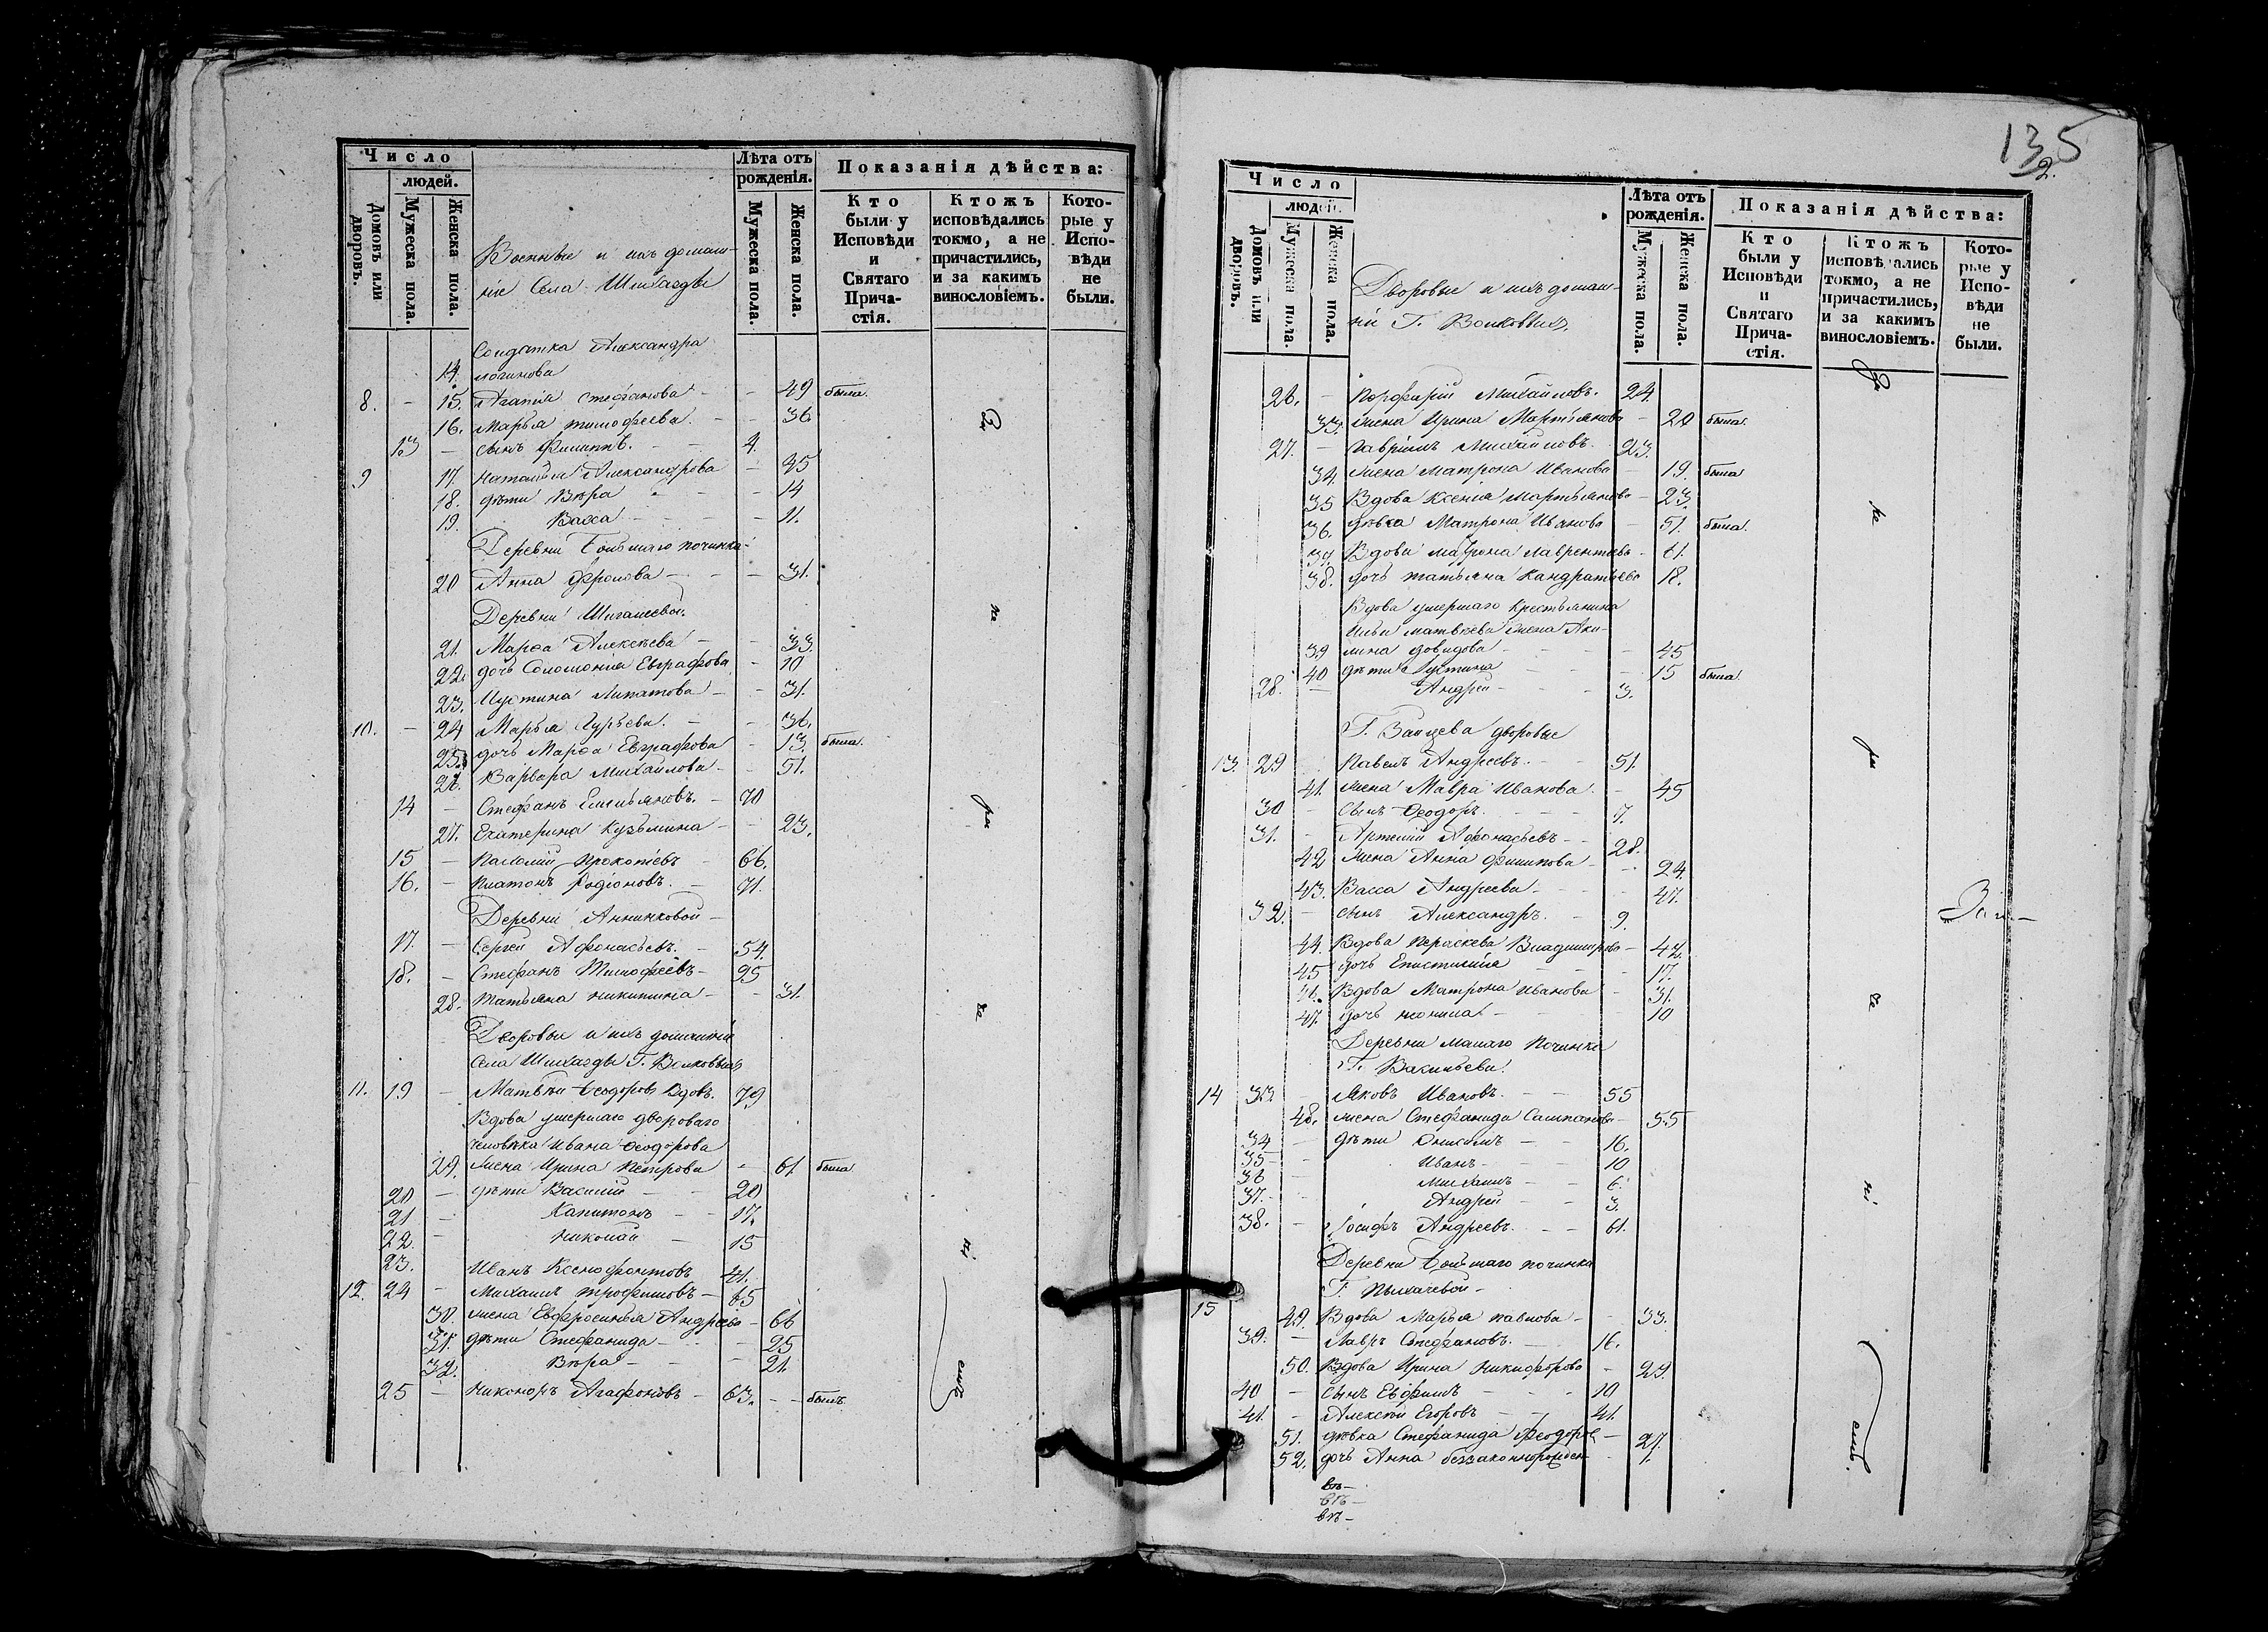 Число
людей.
Домовъ или дворовъ.
Мужеска пола.
Женска пола.
Военные и ихъ домаш-
ніе Села Шилхагды
Лѣта отъ рожденія.
Мужеска пола.
Женска пола.
Показанія дѣйства:
Кто были у Исповѣди и Святаго Прича-стія.
Ктожъ исповѣдались токмо, а не причастились, и за какимъ винословіемъ.
Кото-рые у Испо-вѣди не были.
Солдатка Александра
14. логинова
8. - 15. Агафія Стефанова - - 49 была.
16. Марья тимофеева. - - 36.
13 - сынъ Филиппъ. - - 4.
9 17. Наталья Александрова - 45
18. дѣти Вѣра - - - 14
19. Васса - - - - 11.
Деревни Большаго починка
20 Анна Фролова - - - 31.
Деревни
21. Марѳа Алексѣева - - 33.
22. дочь Соломонія Евграфова - 10
23. Иустина Липатова - - 31.
10. - 24 Марья Гурьева. - - 36.
25. дочь Марѳа Евграфова - 13. была.
26. Варвара Михайлова - - 51.
14 - Стефанъ Емельяновъ. - 70
27. Екатерина Кузьмина - - 23.
15 - Прокопіевъ - 66.
16. - Платонъ Родіоновъ. - 71.
Деревни Аннинковой -
17. - Сергей Афонасьевъ. - 54.
18. - Стефанъ Тимофеевъ - 95
28. Татьяна никитина - - 31.
Дворовые и ихъ домашніи
Села Г. Волковыхъ
11. 19 - Матвѣй Ѳеодоровъ вдовъ. 79
Вдова умершаго двороваго
человѣка Ивана Ѳеодорова
29. жена Ирина Петрова - 61. была
20 - дѣти Василій - - 20
21 - Капитонъ - - 17.
22. - Николай - 15
23. Иванъ Ксенофонтовъ 41.
12. 24 - Михаилъ трофимовъ - 65
30. жена Евфросинья Андреева - 66
31. дѣти Стефанида - - - 25
32. Вѣра - - - 21.
25 - Никоноръ Агафоновъ - 63. - - былъ.
За
не
ра
де
ні
емъ
135
2.
Число
людей.
Домовъ или дворовъ.
Мужеска пола.
Женска пола.
Дворовые и ихъ домаш-
ніи Г. Волковыхъ
Лѣта отъ рожденія.
Мужеска пола.
Женска пола.
Показанія дѣйства:
Кто были у Исповѣди и Святаго Прича-стія.
Ктожъ исповѣдались токмо, а не причастились, и за какимъ винословіемъ.
Кото-рые у Испо-вѣди не были.
26. - Порфирій Михайловъ. 24.
33. жена Ирина Мартьянова - 20 была.
27. - Гавріилъ Михайловъ. 23.
34. жена Матрона Иванова - 19. была
35 Вдова Ксенія Мартьянова - 23.
36. дѣвка Матрона Иванова - 51. была.
37. Вдова Матрона Лаврентьева - 61.
38. дочь татьяна Кандратьева 18.
Вдова умершаго крестьянина
Ильи матвѣева жена Аки-
39 лина довидова - - - 45
40 дѣти Иустина - - - 15 была.
28. - Андрей - - - 3.
Г. Зайцева дворовые
13. 29 Павелъ Андреевъ. - - 51.
41. жена Мавра Иванова. - 45
30 - сынъ Ѳеодоръ. - - - 7.
31. - Артемій Афонасьевъ - - 28.
42 жена Анна Филипова - - 24.
43. Васса Андреева - - - - 47.
32. - сынъ Александръ. - 9.
44. Вдова Параскева Владимирова - 42.
45 дочь Епистимія - - - 17.
46. Вдова Матрона Иванова - 31.
47. дочь - - - 10
Деревни малаго Починка
Г. Васильева.
14 33. Яковъ Ивановъ. - - 55
48. жена Стефанида - 55
34 - дѣти - - 16.
35 - - Иванъ - - - 10
36 - - Михаилъ - - 6.
37. - - Андрей - - 3.
38. - Іосифъ Андреевъ. - - 61.
Деревни Большаго починка
Г. Пыхачевой -
15 49. Вдова Марья павлова - - 33.
39. - Лавръ Стефановъ. - - 16.
50. Вдова Ирина Никифорова - 29.
40 - сынъ Евфимъ - - - 10
41. - Алексѣй Егоровъ - - 41.
51. дѣвка Стефанида Феодоров - 27.
52. дочь Анна беззаконнорожден - 1.
За
не
ра
де
ні
емъ.